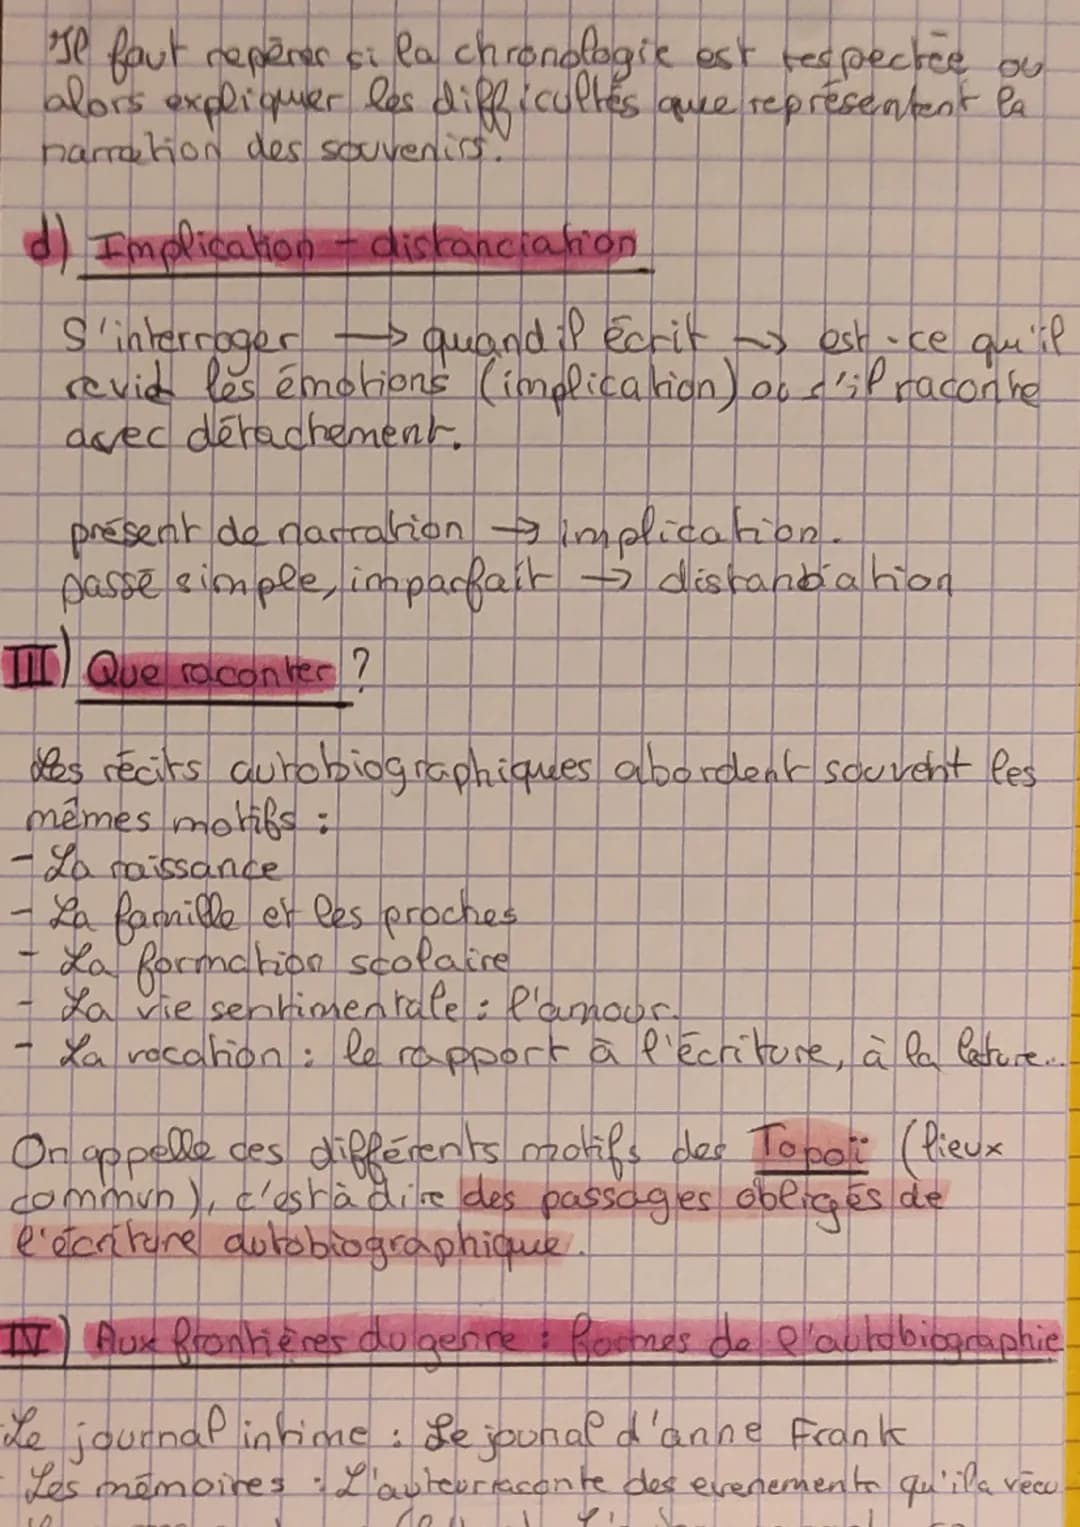 Il faut repérer si la chronologie est respectée ou
alors expliquer les difficultés que représentent la
narration des souvenirs.
d) Implication - distanciation
S'interroger → quand il écrit → est-ce qu'il
revid les émotions (implication) ou s'il raconte
avec détachement.
présent de narration → implication.
passé simple, imparfait → distanciation
III) Que raconter ?
Les récits autobiographiques abordent souvent les
mêmes motifs :
- La naissance
- La famille et les proches
- La formation scolaire
- La vie sentimentale : l'amour.
- La vocation : le rapport à l'écriture, à la lecture...
On appelle ces différents motifs des Topoï (lieux
commun), c'est à dire des passages obligés de
l'écriture autobiographique.
IV) Aux frontières du genre : formes de l'autobiographie
- Le journal intime : Le journal d'anne Frank
- Les mémoires : L'auteur raconte des evenements qu'il a vécu